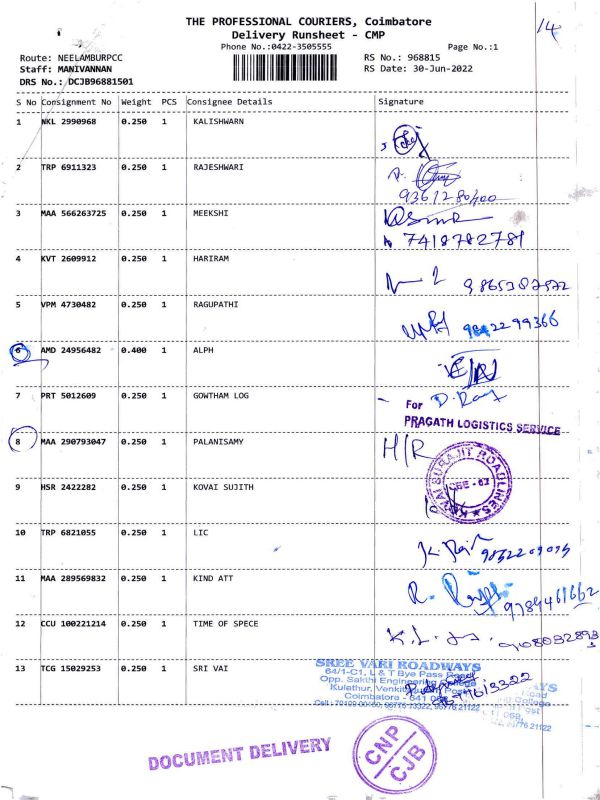 14
THE PROFESSIONAL COURIERS, Coimbatore
Delivery Runsheet - CMP
Phone No.:0422-3505555 Page No.:1
Route: NEELAMBURPCC RS No.: 968815
Staff: MANIVANNAN RS Date: 30-Jun-2022
DRS No.: DCJB96881501
S No Consignment No Weight PCS Consignee Details Signature
1 NKL 2990968 0.250 1 KALISHWARN
2 TRP 6911323 0.250 1 RAJESHWARI
3 MAA 566263725 0.250 1 MEEKSHI
7418782781
4 KVT 2609912 0.250 1 HARIRAM
5 VPM 4730482 0.250 1 RAGUPATHI
9842299366
6 AMD 24956482 0.400 1 ALPH
7 PRT 5012609 0.250 1 GOWTHAM LOG
For
PRAGATH LOGISTICS SERVICE
8 MAA 290793047 0.250 1 PALANISAMY H/R
KOVAI SURAJIT ROADLINES
CBE - 62
9 HSR 2422282 0.250 1 KOVAI SUJITH
10 TRP 6821055 0.250 1 LIC
11 MAA 289569832 0.250 1 KIND ATT
9789461662
12 CCU 100221214 0.250 1 TIME OF SPECE
13 TCG 15029253 0.250 1 SRI VAI
SREE VARI ROADWAYS
64/1-C1, L & T Bye Pass Road
Opp. Sakthi Engineering College
Kulathur, Venkitapuram Post
Coimbatore - 641 062
DOCUMENT DELIVERY
CNP
CJB